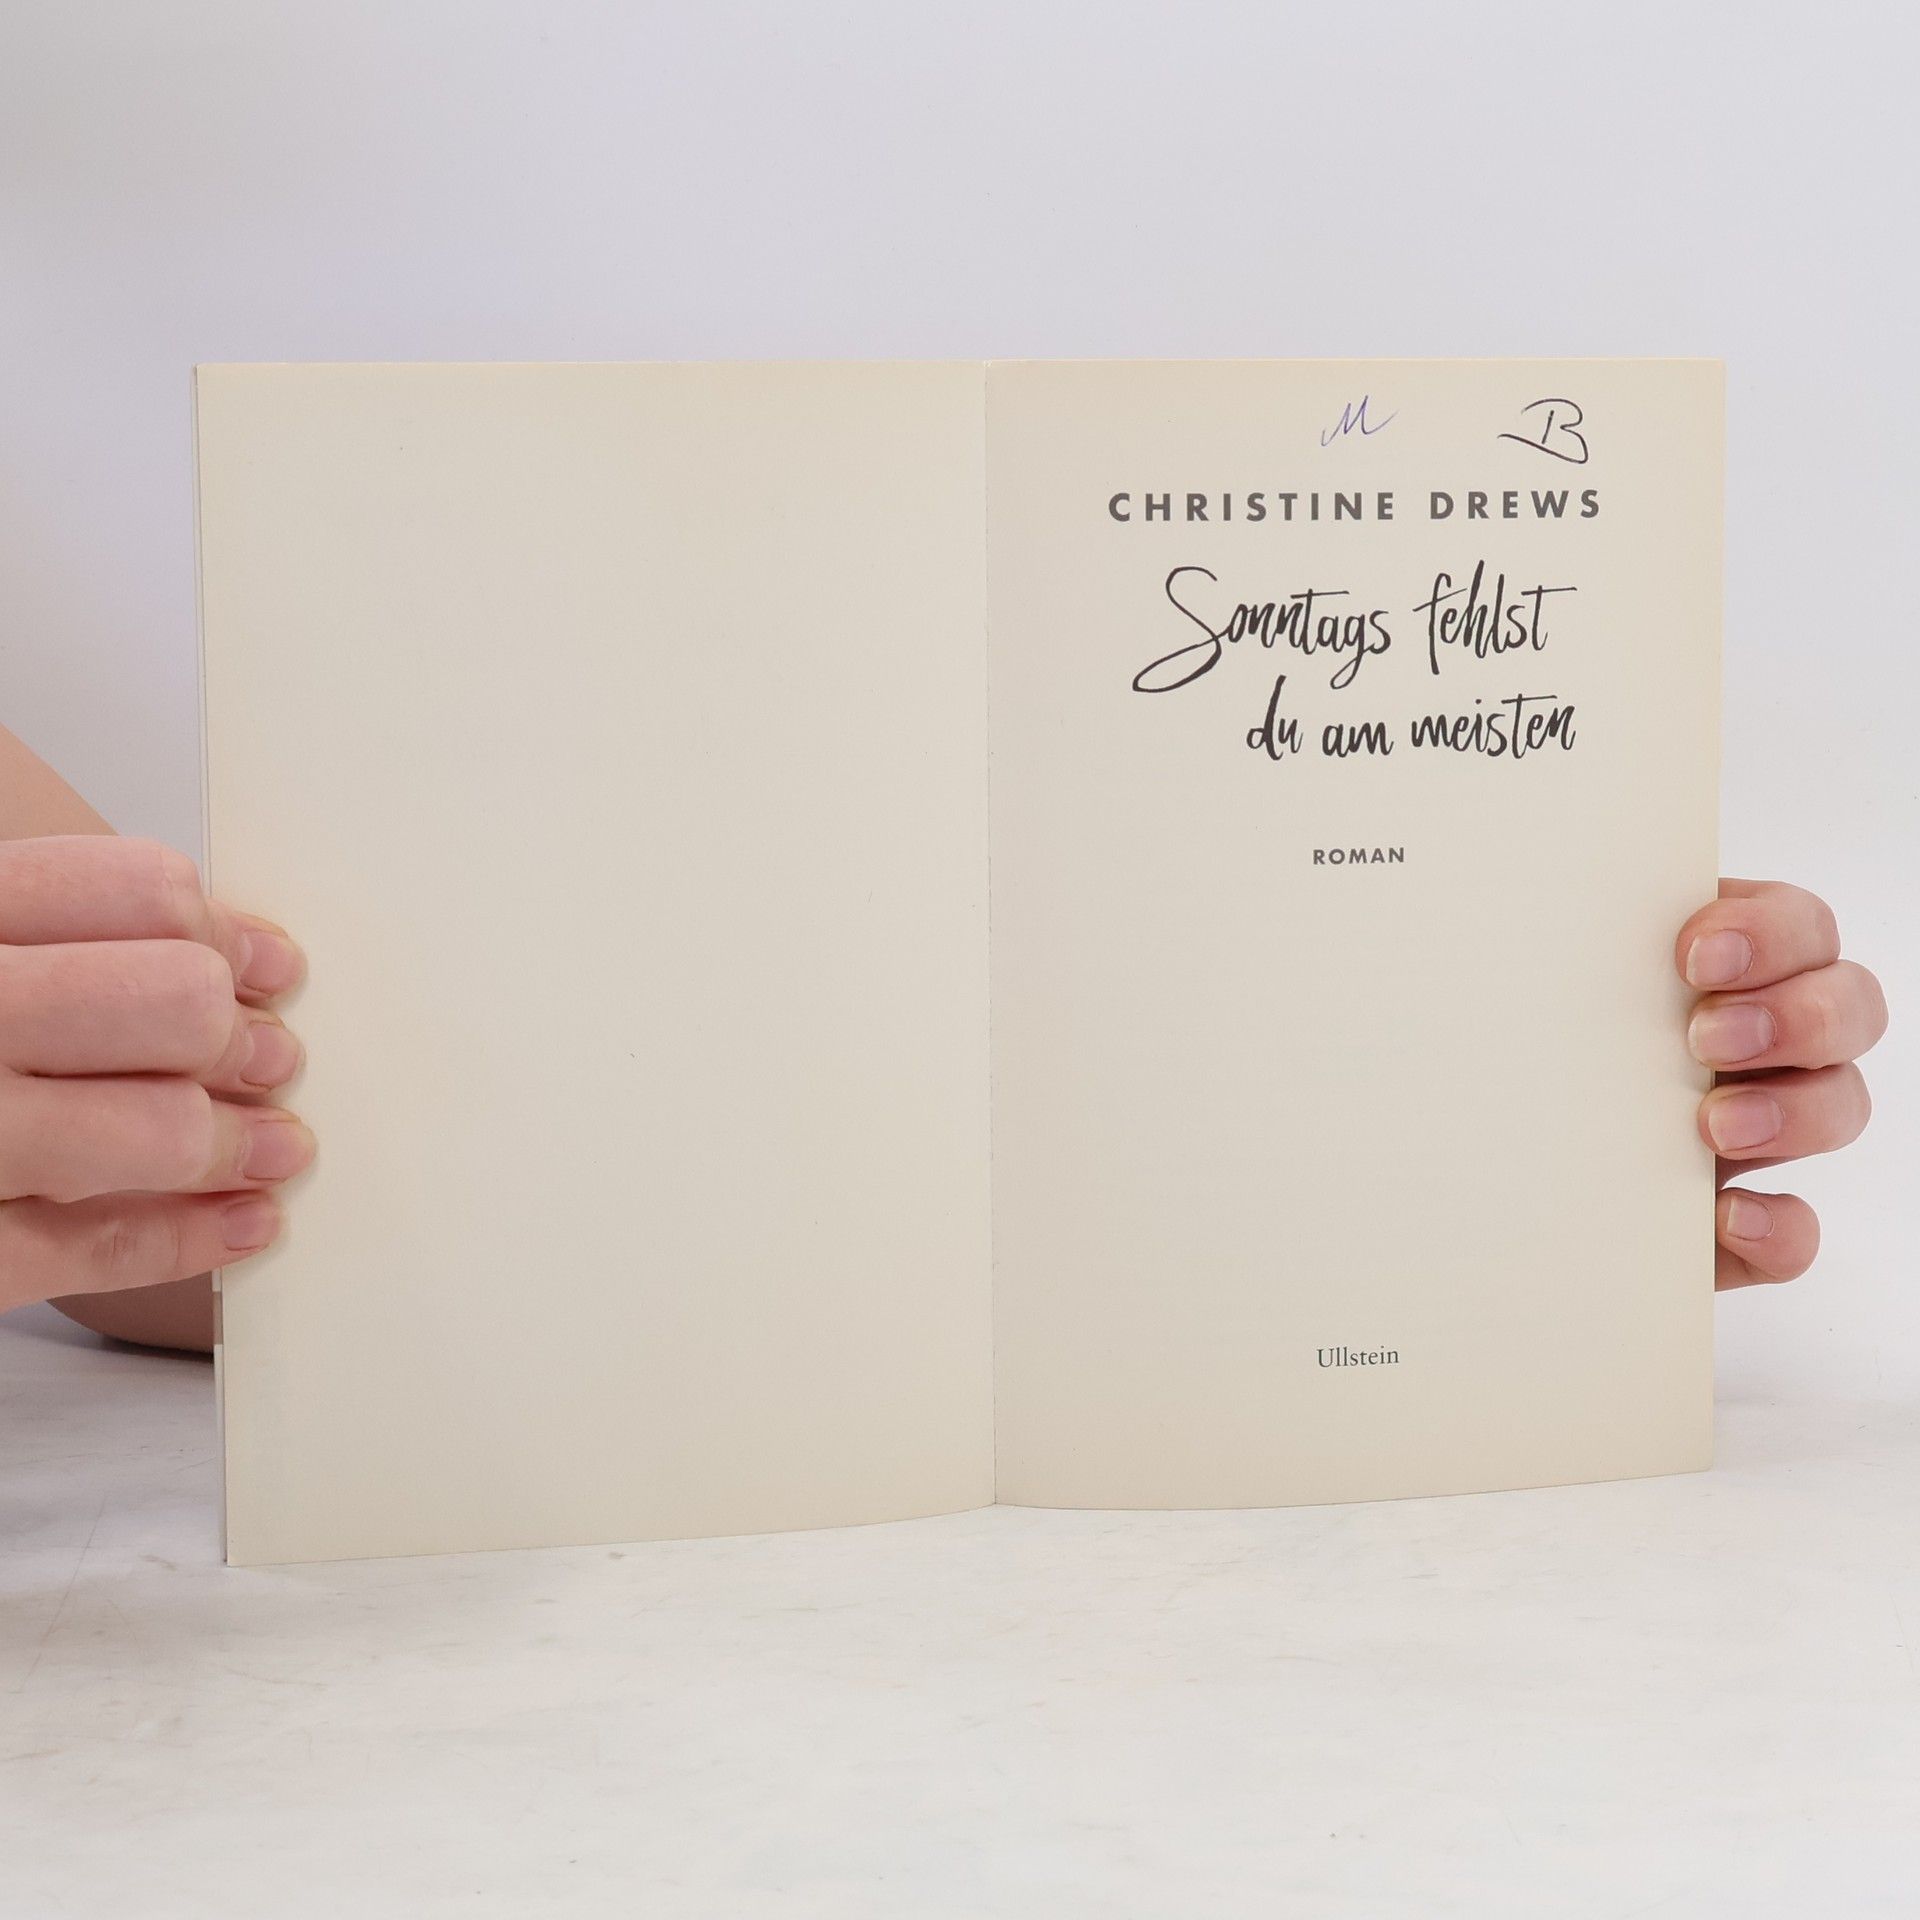 M B
CHRISTINE DREWS
Sonntags fehlst
du am meisten
ROMAN
Ullstein